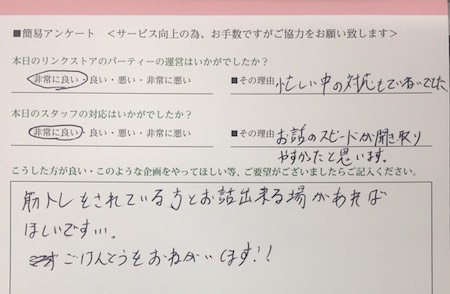 ■簡易アンケート ＜サービス向上の為、お手数ですがご協力をお願い致します＞
本日のリンクストアのパーティーの運営はいかがでしたか？
非常に良い・良い・悪い・非常に悪い ■その理由 忙しい中の対応もていねいでした
本日のスタッフの対応はいかがでしたか？
非常に良い・良い・悪い・非常に悪い ■その理由 お話のスピードが聞き取り
やすかったと思います。
こうした方が良い・このような企画をやってほしい等、ご要望がございましたらご記入ください。
筋トレをされている方とお話出来る場があれば
ほしいです…。
ごけんとうをおねがいします!!